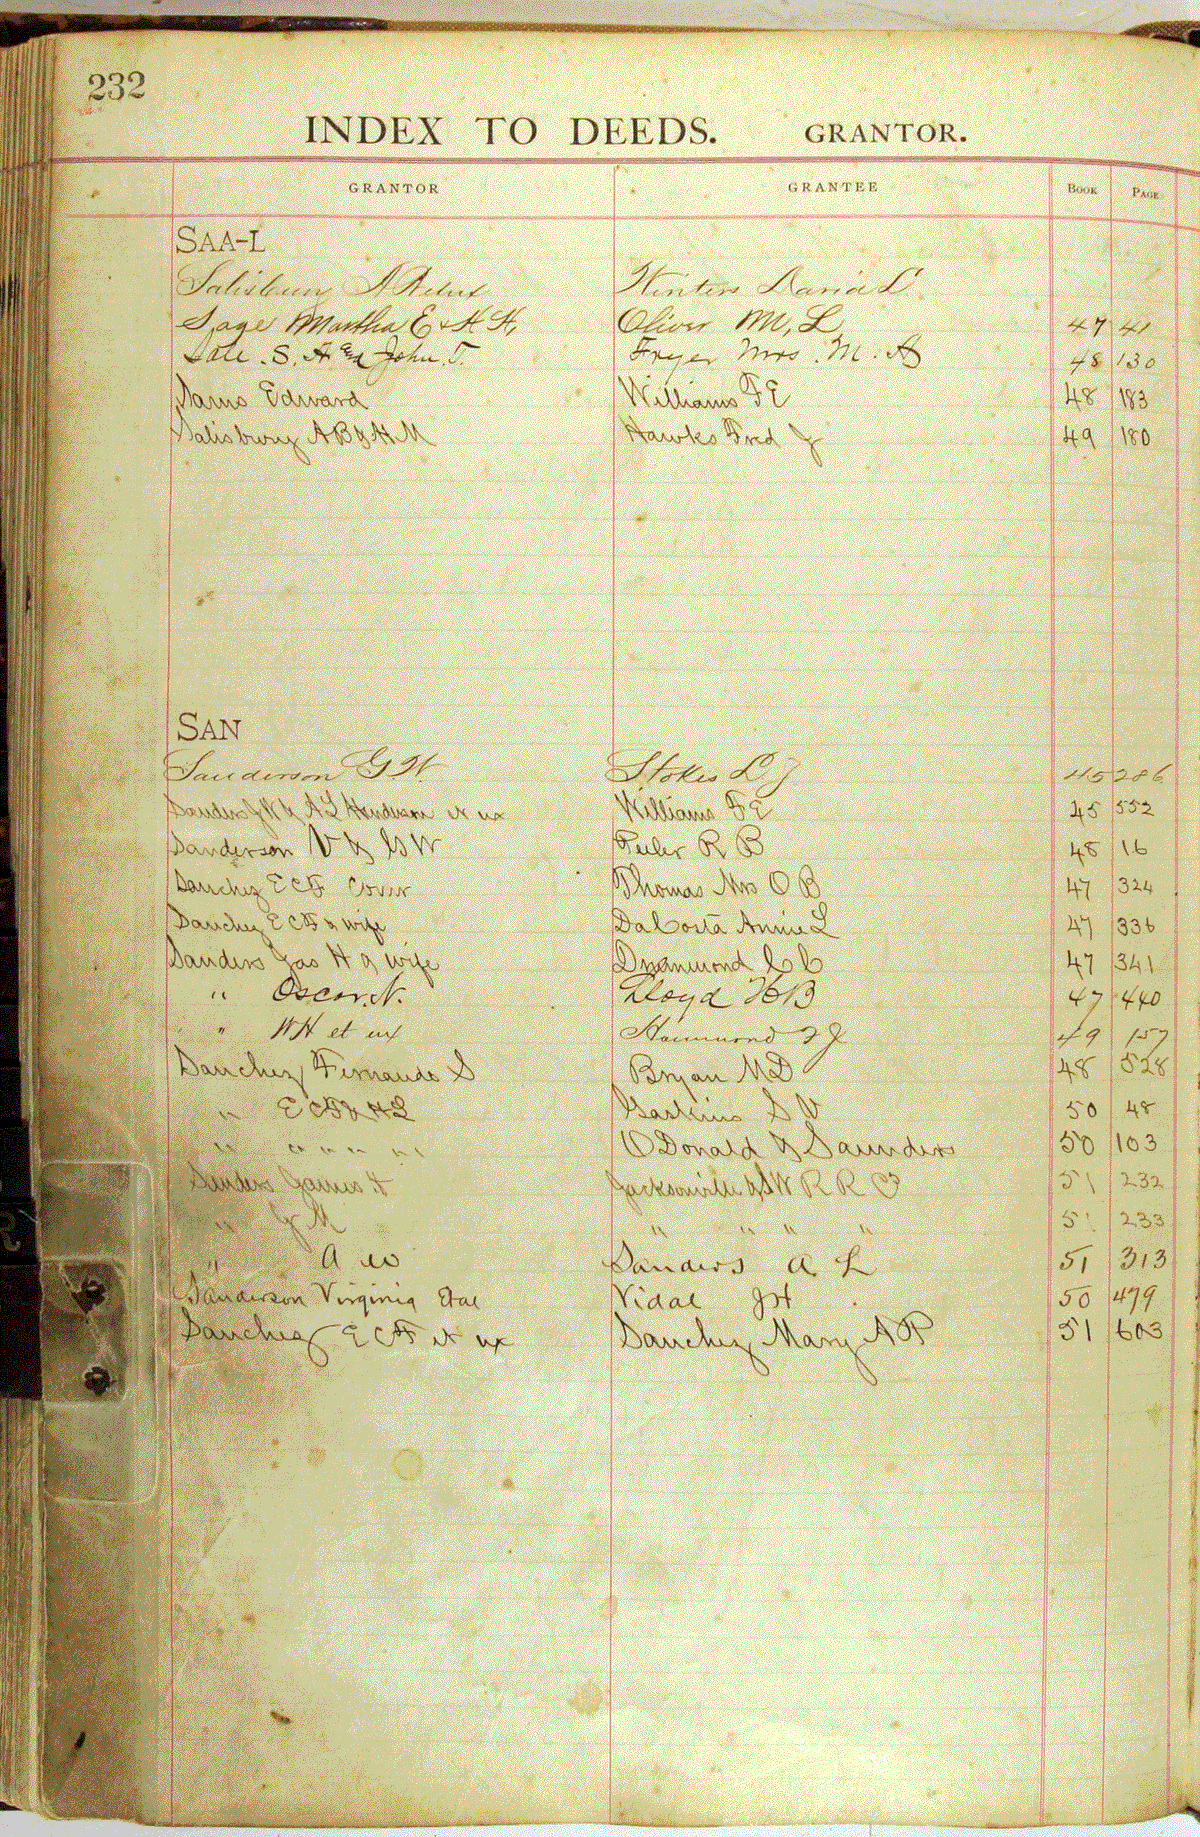 232
INDEX TO DEEDS. GRANTOR.
GRANTOR GRANTEE BOOK PAGE
SAA-L
Salisbury A B et ux Winters David L
Sage Martha E & H H, Oliver M, L, 47 41
Sale . S. A. and John. T. Fryer Mrs . M. A 48 130
Sams Edward Williams F E 48 183
Salisbury A B & H M Hawks Fred J 49 180
SAN
Sanderson G W. Stokes L J 45 286
Sanders J W & A L Henderson et ux Williams F E 45 552
Sanderson V & G W R B 48 16
Sanchez E C F Thomas Mrs O B 47 324
Sanchez E C F & wife DaCosta Annie L 47 336
Sanders Jas H & wife Drammond C C 47 341
" Oscar. N. Lloyd H B 47 440
" W H et ux Hammond F J 49 157
Sanchez Fernando S Bryan M D 48 528
" E C F & H L Gaskins S V 50 48
" " " " " " O Donald & Saunders 50 103
Sanders James H Jacksonville & S W R R Co 51 232
" G M " " " " 51 233
" A W Sanders A L 51 313
Sanderson Virginia Etal Vidal J H 50 479
Sanchez E C F et ux Sanchez Mary A P 51 603